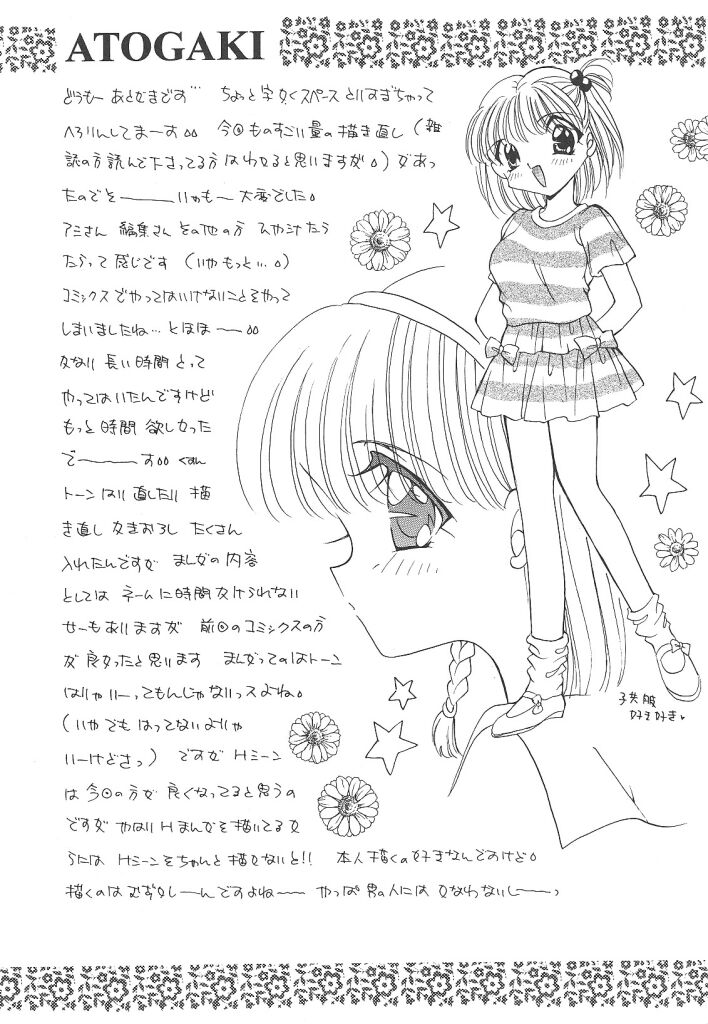 ATOGAKI
どうもー あとがきです… ちょっと字かくスペースとりすぎちゃって
へろりんしてまーす。。 今回ものすごい量の描き直し(雑
誌の方読んで下さってる方はわかると思いますが。)があっ
たのでそーーーいやもー 大変でした。
アミさん 編集さん その他の方 ひやひやたら
たらって感じです (いやもっと…。)
コミックスでやってはいけないことをやって
しまいましたね… とほほーー。。
かなり 長い時間 とって
やってはいたんですけど
もっと時間 欲しかった
でーーーーす。。
トーン はり直したり 描
き直し かきおろし たくさん
入れたんですが まんがの内容
としては ネームに時間かけられない
せーもありますが 前回のコミックスの方
が良かったと思います まんがってのはトーン
はりゃいーってもんじゃないっスよね。
(いやでも はってないよりゃ
いーけどさっ) ですが Hシーン
は今回の方が 良くなってると思うの
ですが やはりHまんがを描いてるか
らには Hシーンをちゃんと描かないと!! 本人描くの好きなんですけど。
描くのは むずかしーーんですよねーー やっぱ 男の人には かなわないしーーっ
子供服
好き好き♥